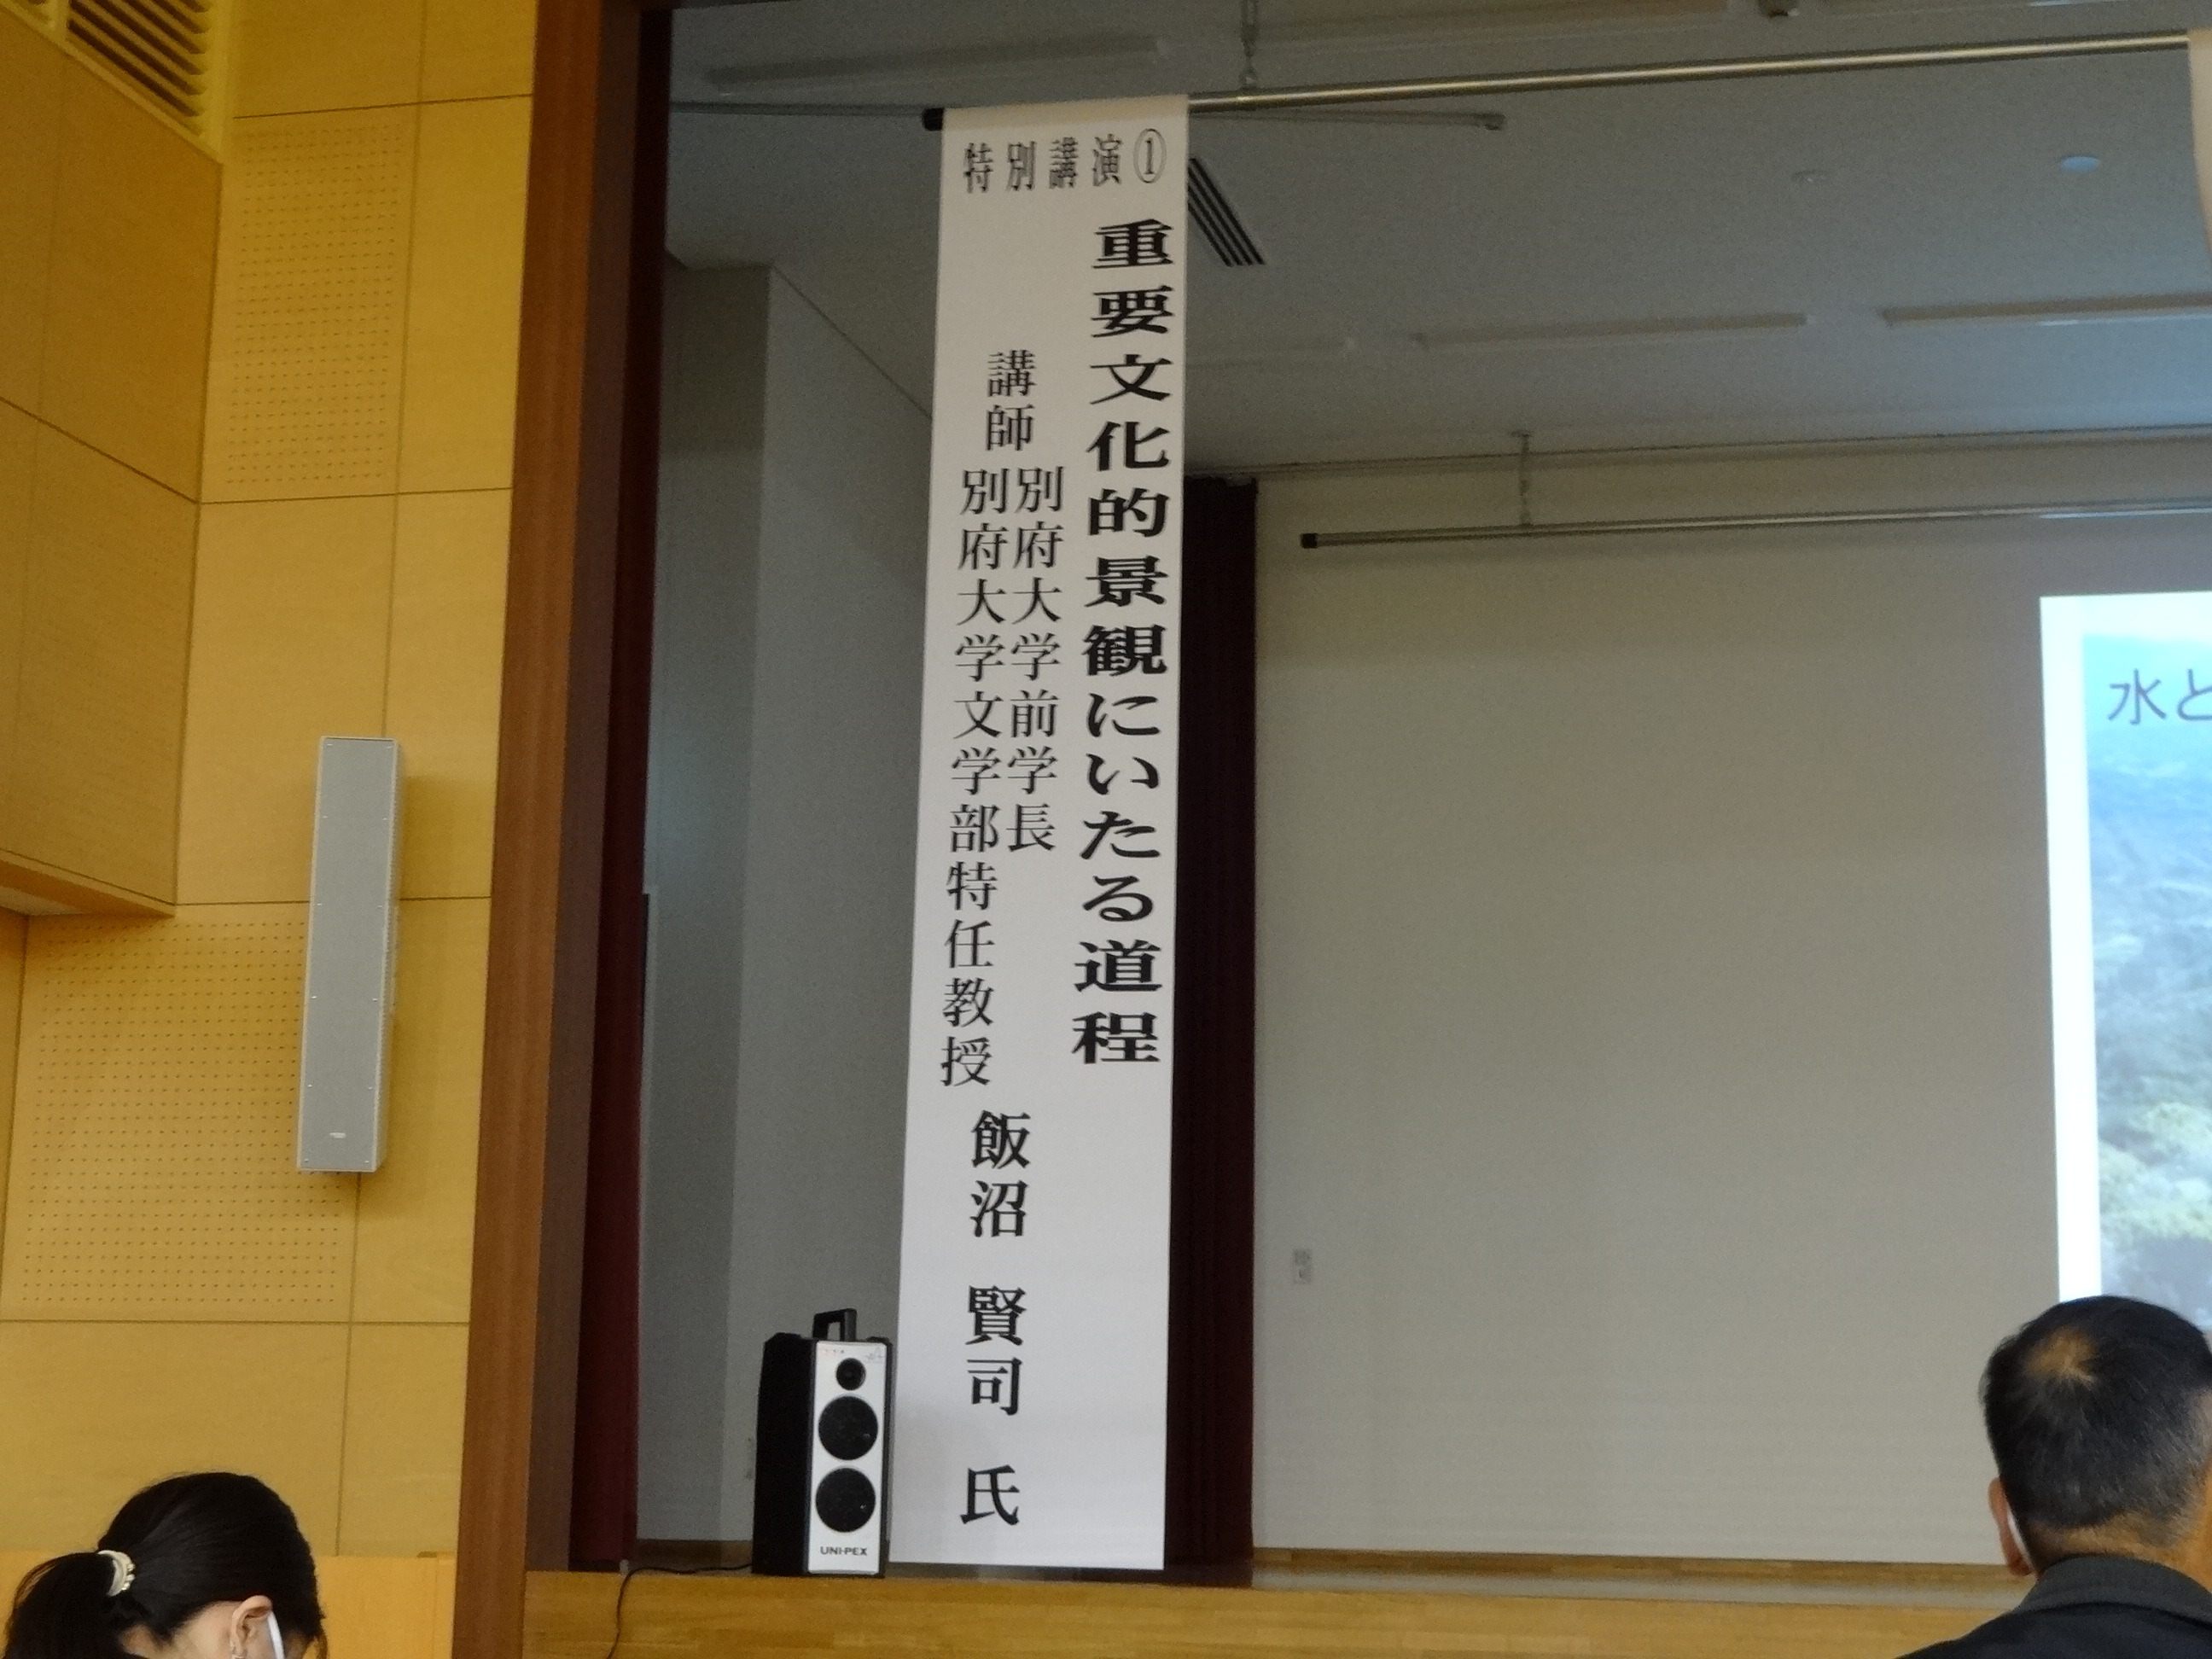 特別講演①
重要文化的景観にいたる道程
講師
別府大学前学長
別府大学文学部特任教授
飯沼 賢司 氏
水と
UNI-PEX